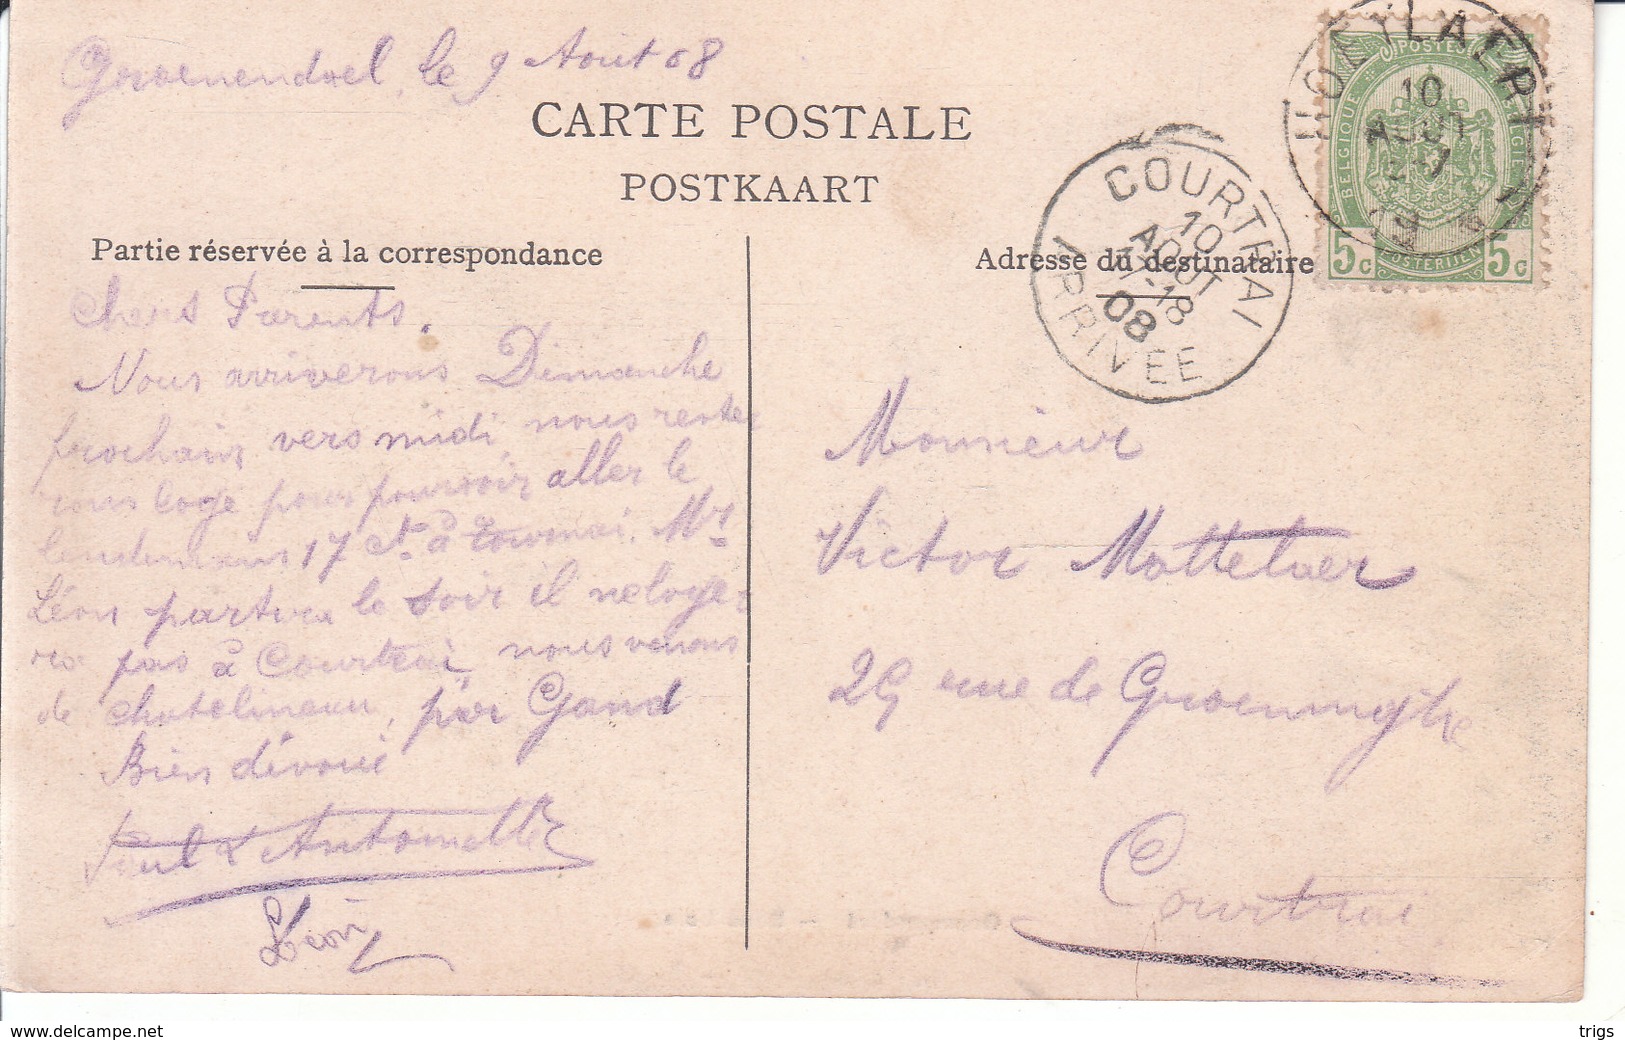 Groenendael, le 9 Août 08
CARTE POSTALE
POSTKAART
Partie réservée à la correspondance
Chers Parents.
Nous arriverons Dimanche
prochain vers midi nous reste
rons loge pour pourvoir aller le
lendemain 17 ct à Tournai. Mr
Léon partira le soir il neloge=
ra pas à Courtrai, nous venons
de chatelineau, par Gand
Bien dévoué
Paul & Antoinette
Léon
Adresse du destinataire
Monsieur
Victor Mattelaer
29 rue de Groeninghe
Courtrai
COURTRAI
10
AOUT
18
08
ARRIVEE
HOEYLAERT
10
AOUT
POSTES
BELGIQUE
BELGIE
POSTERIJEN
5c
5c
delcampe.net
trigs